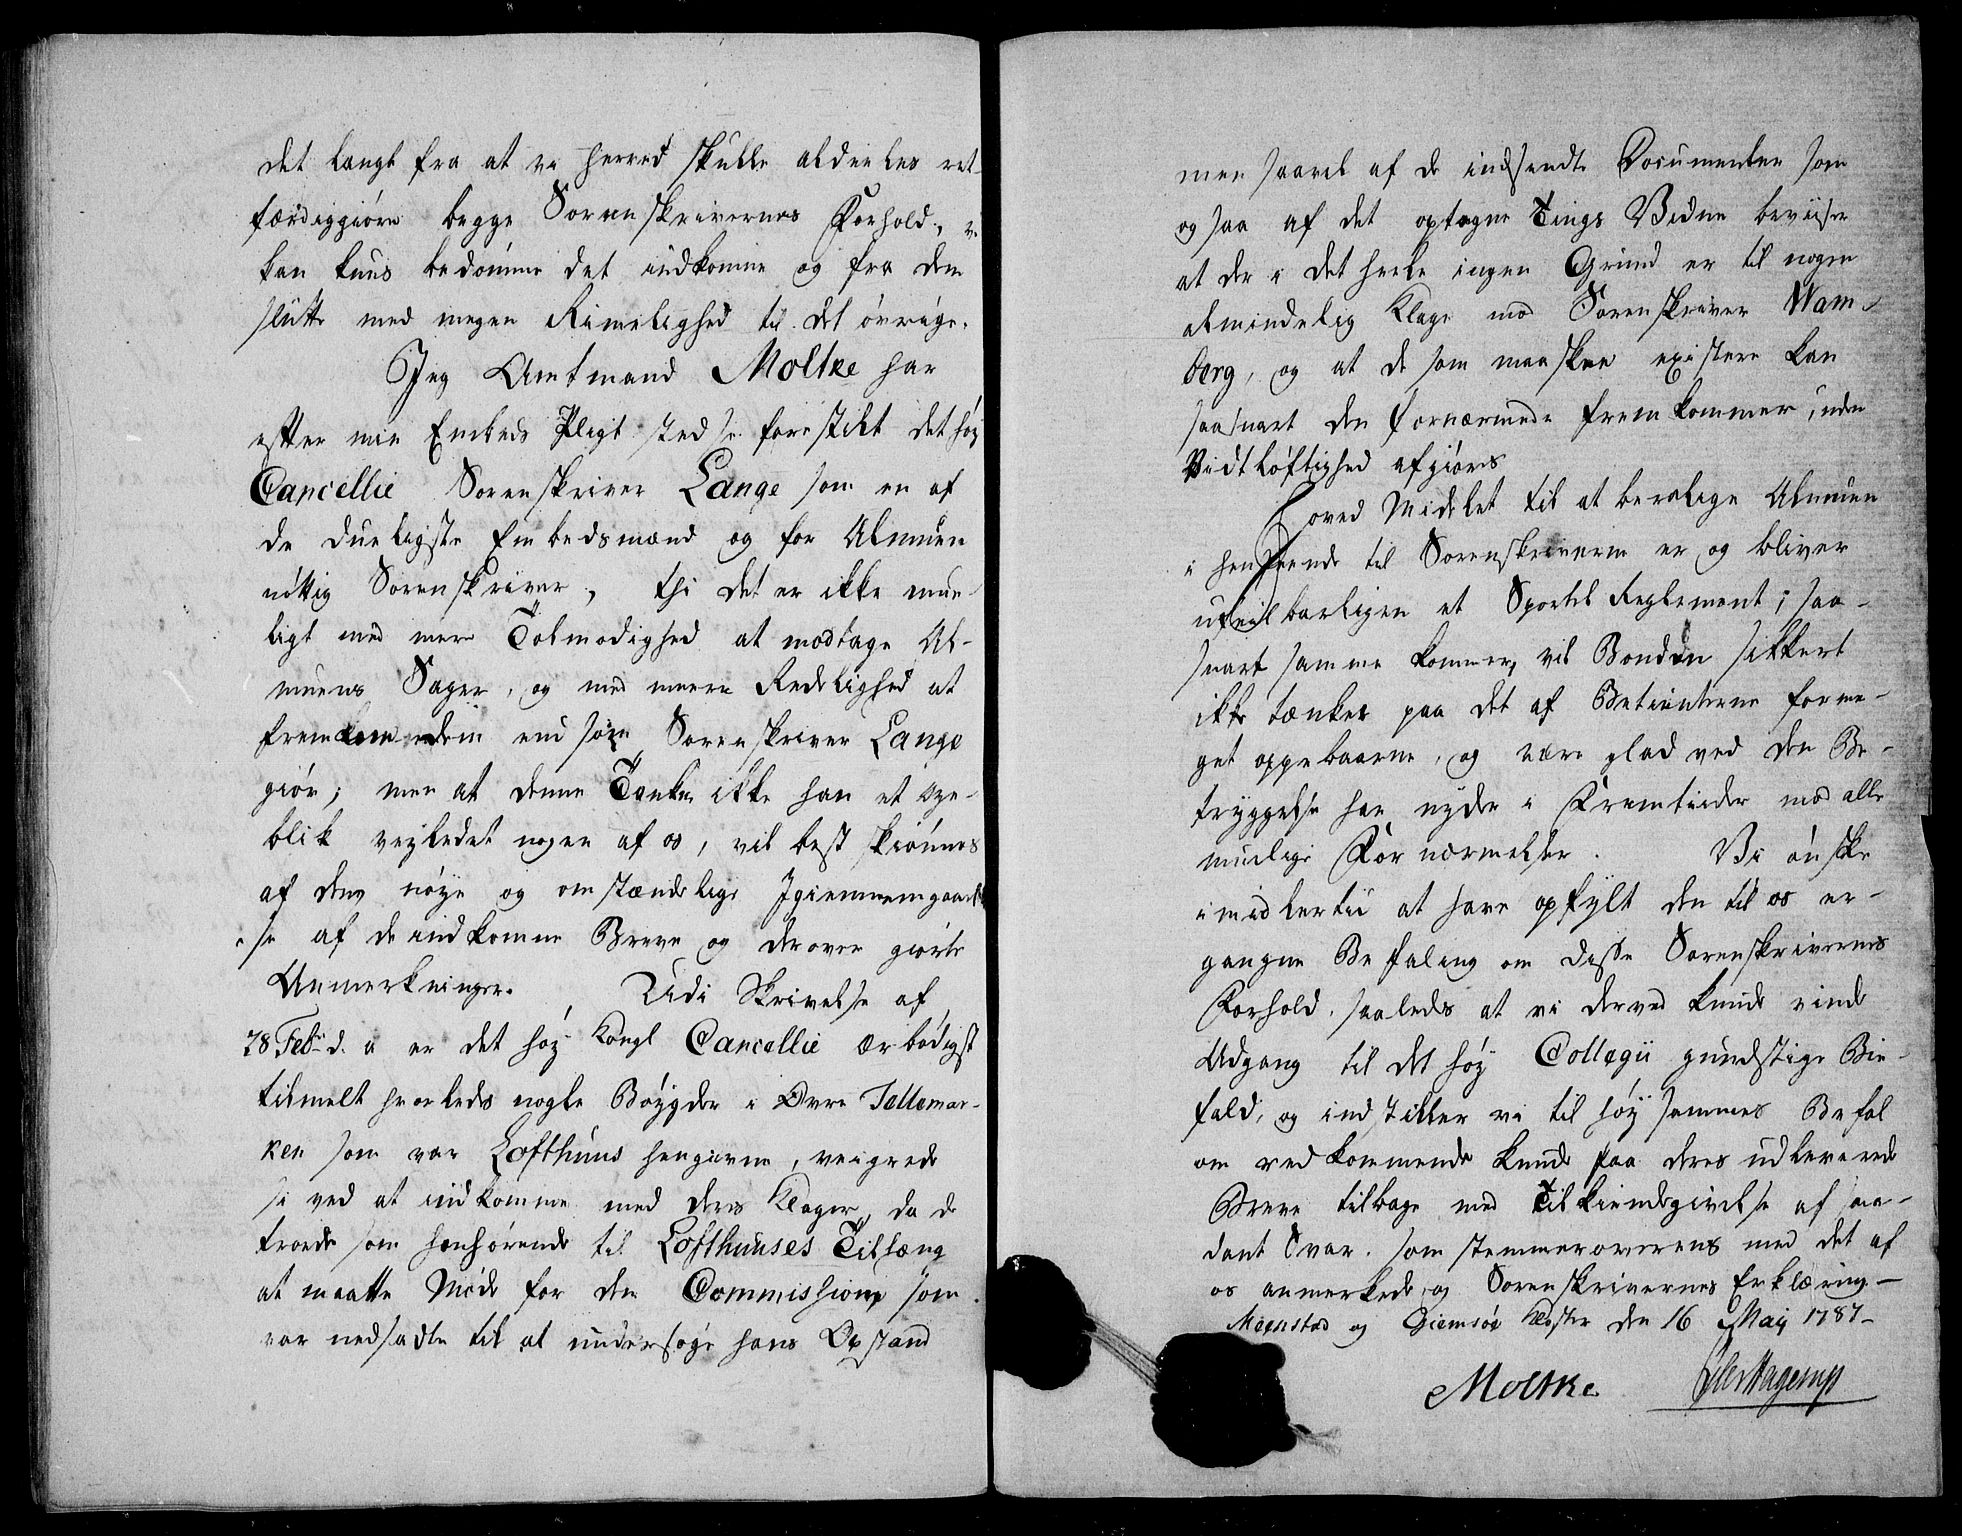 det langt fra at vi herved skulle aldeeles ret-
færdiggiøre begge Sorenskrivernes Forhold, vi
kan kuns bedømme det indkomne og fra dem
slutte med megen Rimelighed til det øvrige.
Jeg Amtmand Moltke har
efter min Embeds Pligt stedse forestillt det høy
Cancellie Sorenskriver Lange som en af
de dueligste Embedsmænd og for Almuen
nøttig Sorenskriver, thi det er ikke mue-
ligt med mere Tolmodighed at modtage Al-
muens Sager, og med meere Redelighed at
fremme dem end som Sorenskriver Lange
giør; men at denne Tanke ikke har et øye-
blik veyledet nogen af os, vil best skiønnes
af den nøye og omstændelige Igiennemgaael-
se af de indkomne Breve og derover giorte
Anmerkninger. Udi Skrivelse af
28 Febr d. a er det høy Kongl Cancellie ærbødigst
tilmelt hvorledes nogle Bøygder i Øvre Tellemar-
ken som var Lofthuus hengivne, veigrede
sig ved at indkomme med deres Klager, da de
troede som henhørende til Lofthuuses Tilhæng
at maatte Møde for den Commission som
var nedsadte til at undersøge hans Opstand
men saavel af de indsendte Documenter som
og saa af det optagne Tings Vidne beviises
at der i det heele ingen Grund er til nogen
almindelig Klage mod Sorenskriver Wam-
berg, og at de som maaskee existere kan
saasnart den fornærmede fremkommer, uden
Vidtløftighed afgiøres
Hoved Midelet til at berolige Almuen
i henseende til Sorenskriverne er og bliver
ufeilbarligen et Sportel Reglement; saa-
snart samme kommer, vil Bonden sikkert
ikke tænke paa det af Betienterne forme-
get oppebaarne, og være glad ved den Be-
tryggelse han nyder i Fremtiider mod alle
muelige Fornærmelser. Vi ønske
imidlertii at have opfylt den til os er-
gangne Befaling om disse Sorenskrivernes
Forhold saaledes at vi derved kunde vinde
Udgang til det høy Collegii gunstige Bie-
fald, og indstiller vi til høysammes Befal
om vedkommende kunde faa deres udleverede
Breve tilbage med Tilkiendegivelse af saa-
dant Svar som stemmer overens med det af
os anmerkede og Sorenskrivernes Erklæring-
Meenstad og Giemsøe Kloster den 16 Maij 1787-
Moltke Hagerup